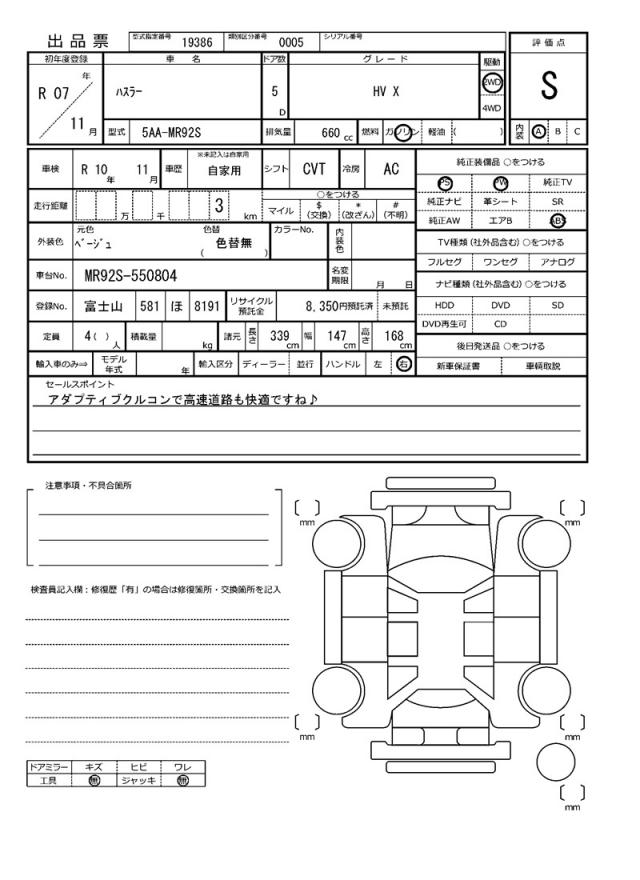 出品票 型式指定番号 19386 類別区分番号 0005 シリアル番号
初年度登録 車名 ドア数 グレード 駆動 評価点
R 07 年 11 月 ハスラー 5 D HV X 2WD 4WD S
型式 5AA-MR92S 排気量 660 cc 燃料 ガソリン 軽油 ( ) 内装 A B C
車検 R 10 年 11 月 車歴 ※未記入は自家用 自家用 シフト CVT 冷房 AC 純正装備品 ○をつける
PS PW 純正TV
走行距離 万 千 3 km ○をつける 純正ナビ 革シート SR
マイル $(交換) *(改ざん) #(不明) 純正AW エアB ABS
外装色 元色 ベージュ 色替 色替無 ( ) カラーNo. 内装色 TV種類(社外品含む)○をつける
フルセグ ワンセグ アナログ
車台No. MR92S-550804 名変期限 月 日 ナビ種類(社外品含む)○をつける
登録No. 富士山 581 ほ 8191 リサイクル預託金 8,350円預託済 未預託 HDD DVD SD
DVD再生可 CD
定員 4( ) 人 積載量 kg 諸元 長さ 339 cm 幅 147 cm 高さ 168 cm 後日発送品 ○をつける
輸入車のみ⇒ モデル年式 年 輸入区分 ディーラー 並行 ハンドル 左 右 新車保証書 車輌取説
セールスポイント
アダプティブクルコンで高速道路も快適ですね♪
注意事項・不具合箇所
mm mm
検査員記入欄:修復歴「有」の場合は修復箇所・交換箇所を記入
mm mm
ドアミラー キズ ヒビ ワレ
工具 無 ジャッキ 無
mm